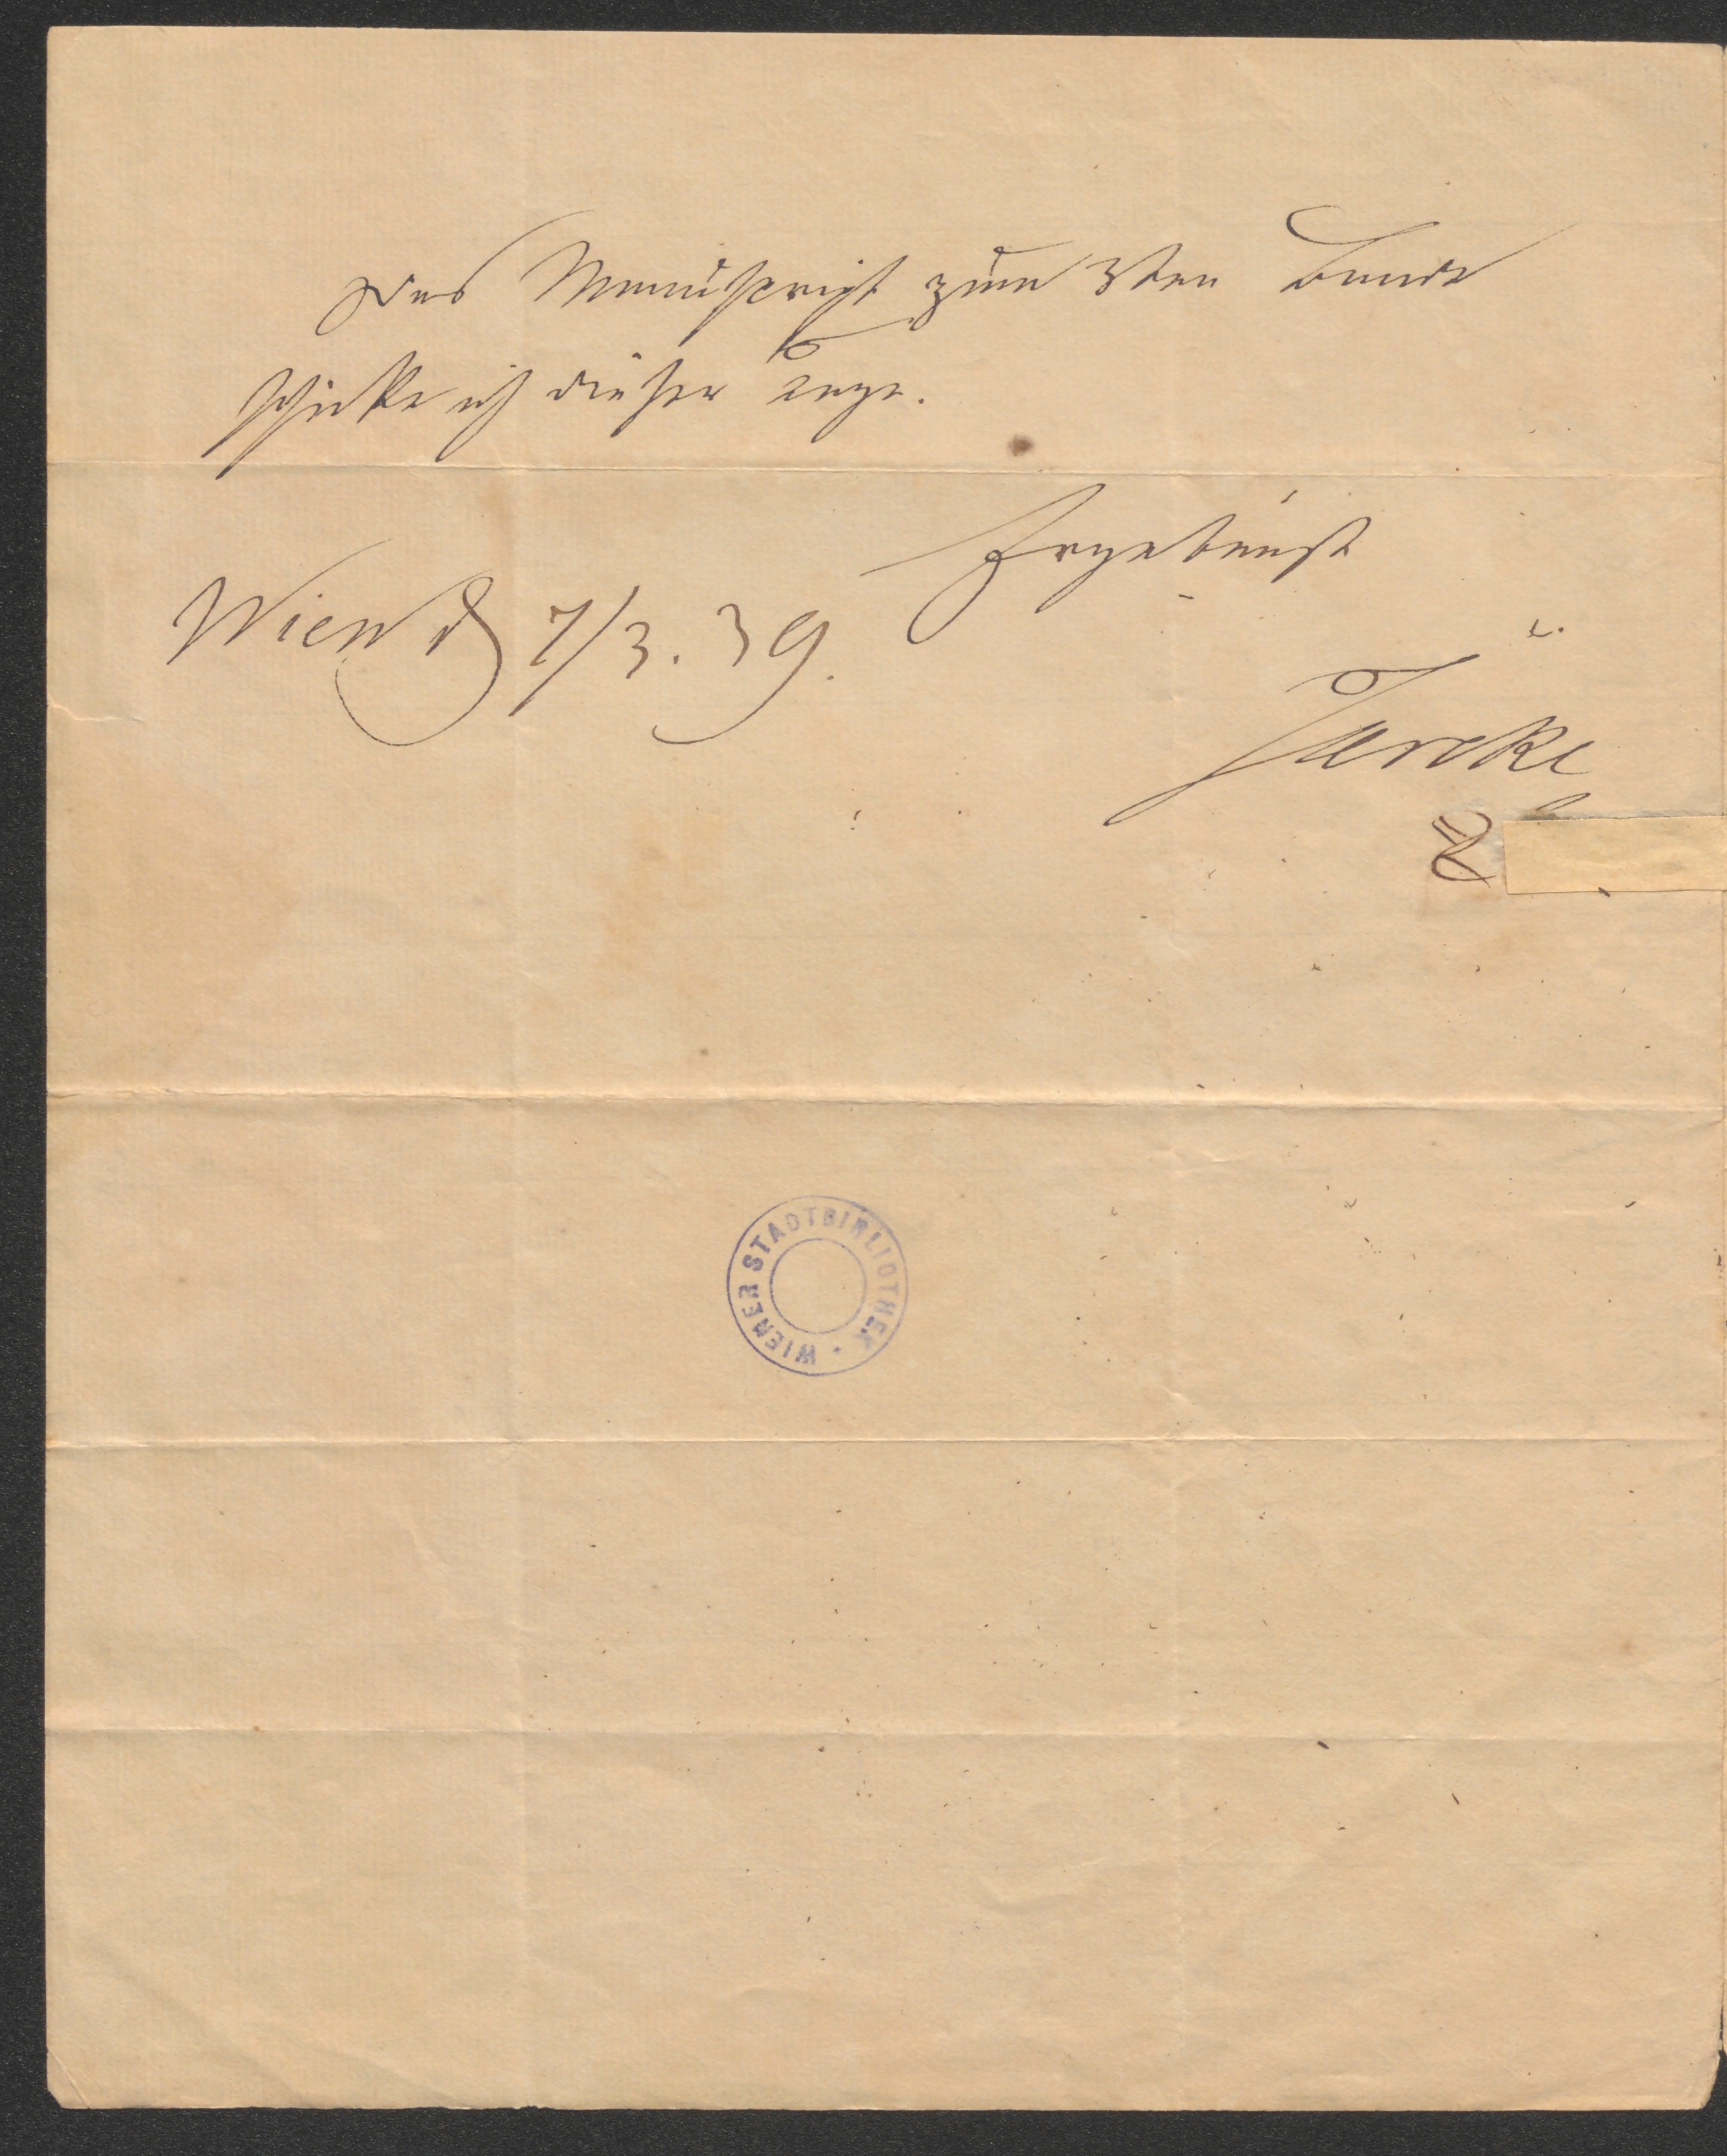 Das Manuskript zum 3ten Bande
schicke ich dieser Tage.
Ergebenst
Wien d 7/3. 39.
Jarcke
WIENER STADTBIBLIOTHEK